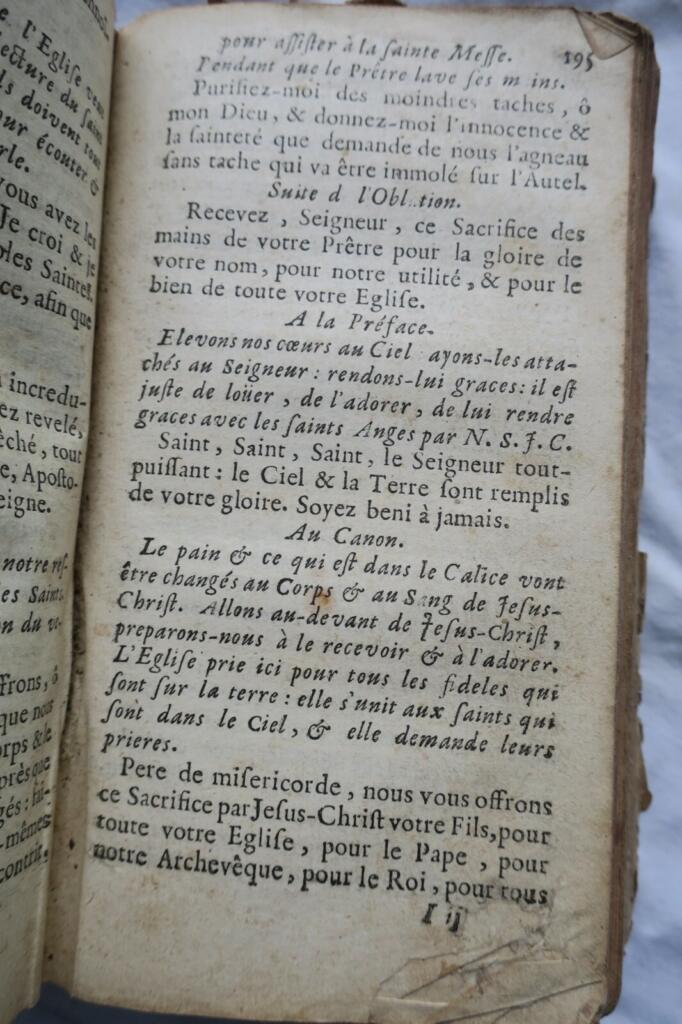 l'Eglise
lecture du
ls doivent tout
our écouter &
rle.
vous avez les
Je croi & je
oles Saintes.
ce, afin que
incredu-
ez revelé,
êché, tout
e, Aposto-
eigne.
notre
es
n du
ffrons, ô
que nous
orps & le
près que
gés :
-mêmes
contrit,
pour aſſiſter à la ſainte Meſſe. 195
Pendant que le Prêtre lave ſes m ins.
Purifiez-moi des moindres taches, ô
mon Dieu, & donnez-moi l'innocence &
la ſainteté que demande de nous l'agneau
ſans tache qui va être immolé ſur l'Autel.
Suite d l'Obl tion.
Recevez, Seigneur, ce Sacrifice des
mains de votre Prêtre pour la gloire de
votre nom, pour notre utilité, & pour le
bien de toute votre Egliſe.
A la Préface.
Elevons nos cœurs au Ciel ayons-les atta-
chés au Seigneur : rendons-lui graces : il eſt
juſte de loüer, de l'adorer, de lui rendre
graces avec les ſaints Anges par N. S. J. C.
Saint, Saint, Saint, le Seigneur tout-
puiſſant : le Ciel & la Terre ſont remplis
de votre gloire. Soyez beni à jamais.
Au Canon.
Le pain & ce qui eſt dans le Calice vont
être changés au Corps & au Sang de Jeſus-
Chriſt. Allons au-devant de Jeſus-Chriſt,
preparons-nous à le recevoir & à l'adorer.
L'Egliſe prie ici pour tous les fideles qui
ſont ſur la terre : elle s'unit aux ſaints qui
ſont dans le Ciel, & elle demande leurs
prieres.
Pere de miſericorde, nous vous offrons
ce Sacrifice par Jeſus-Chriſt votre Fils, pour
toute votre Egliſe, pour le Pape, pour
notre Archevêque, pour le Roi, pour tous
I ij